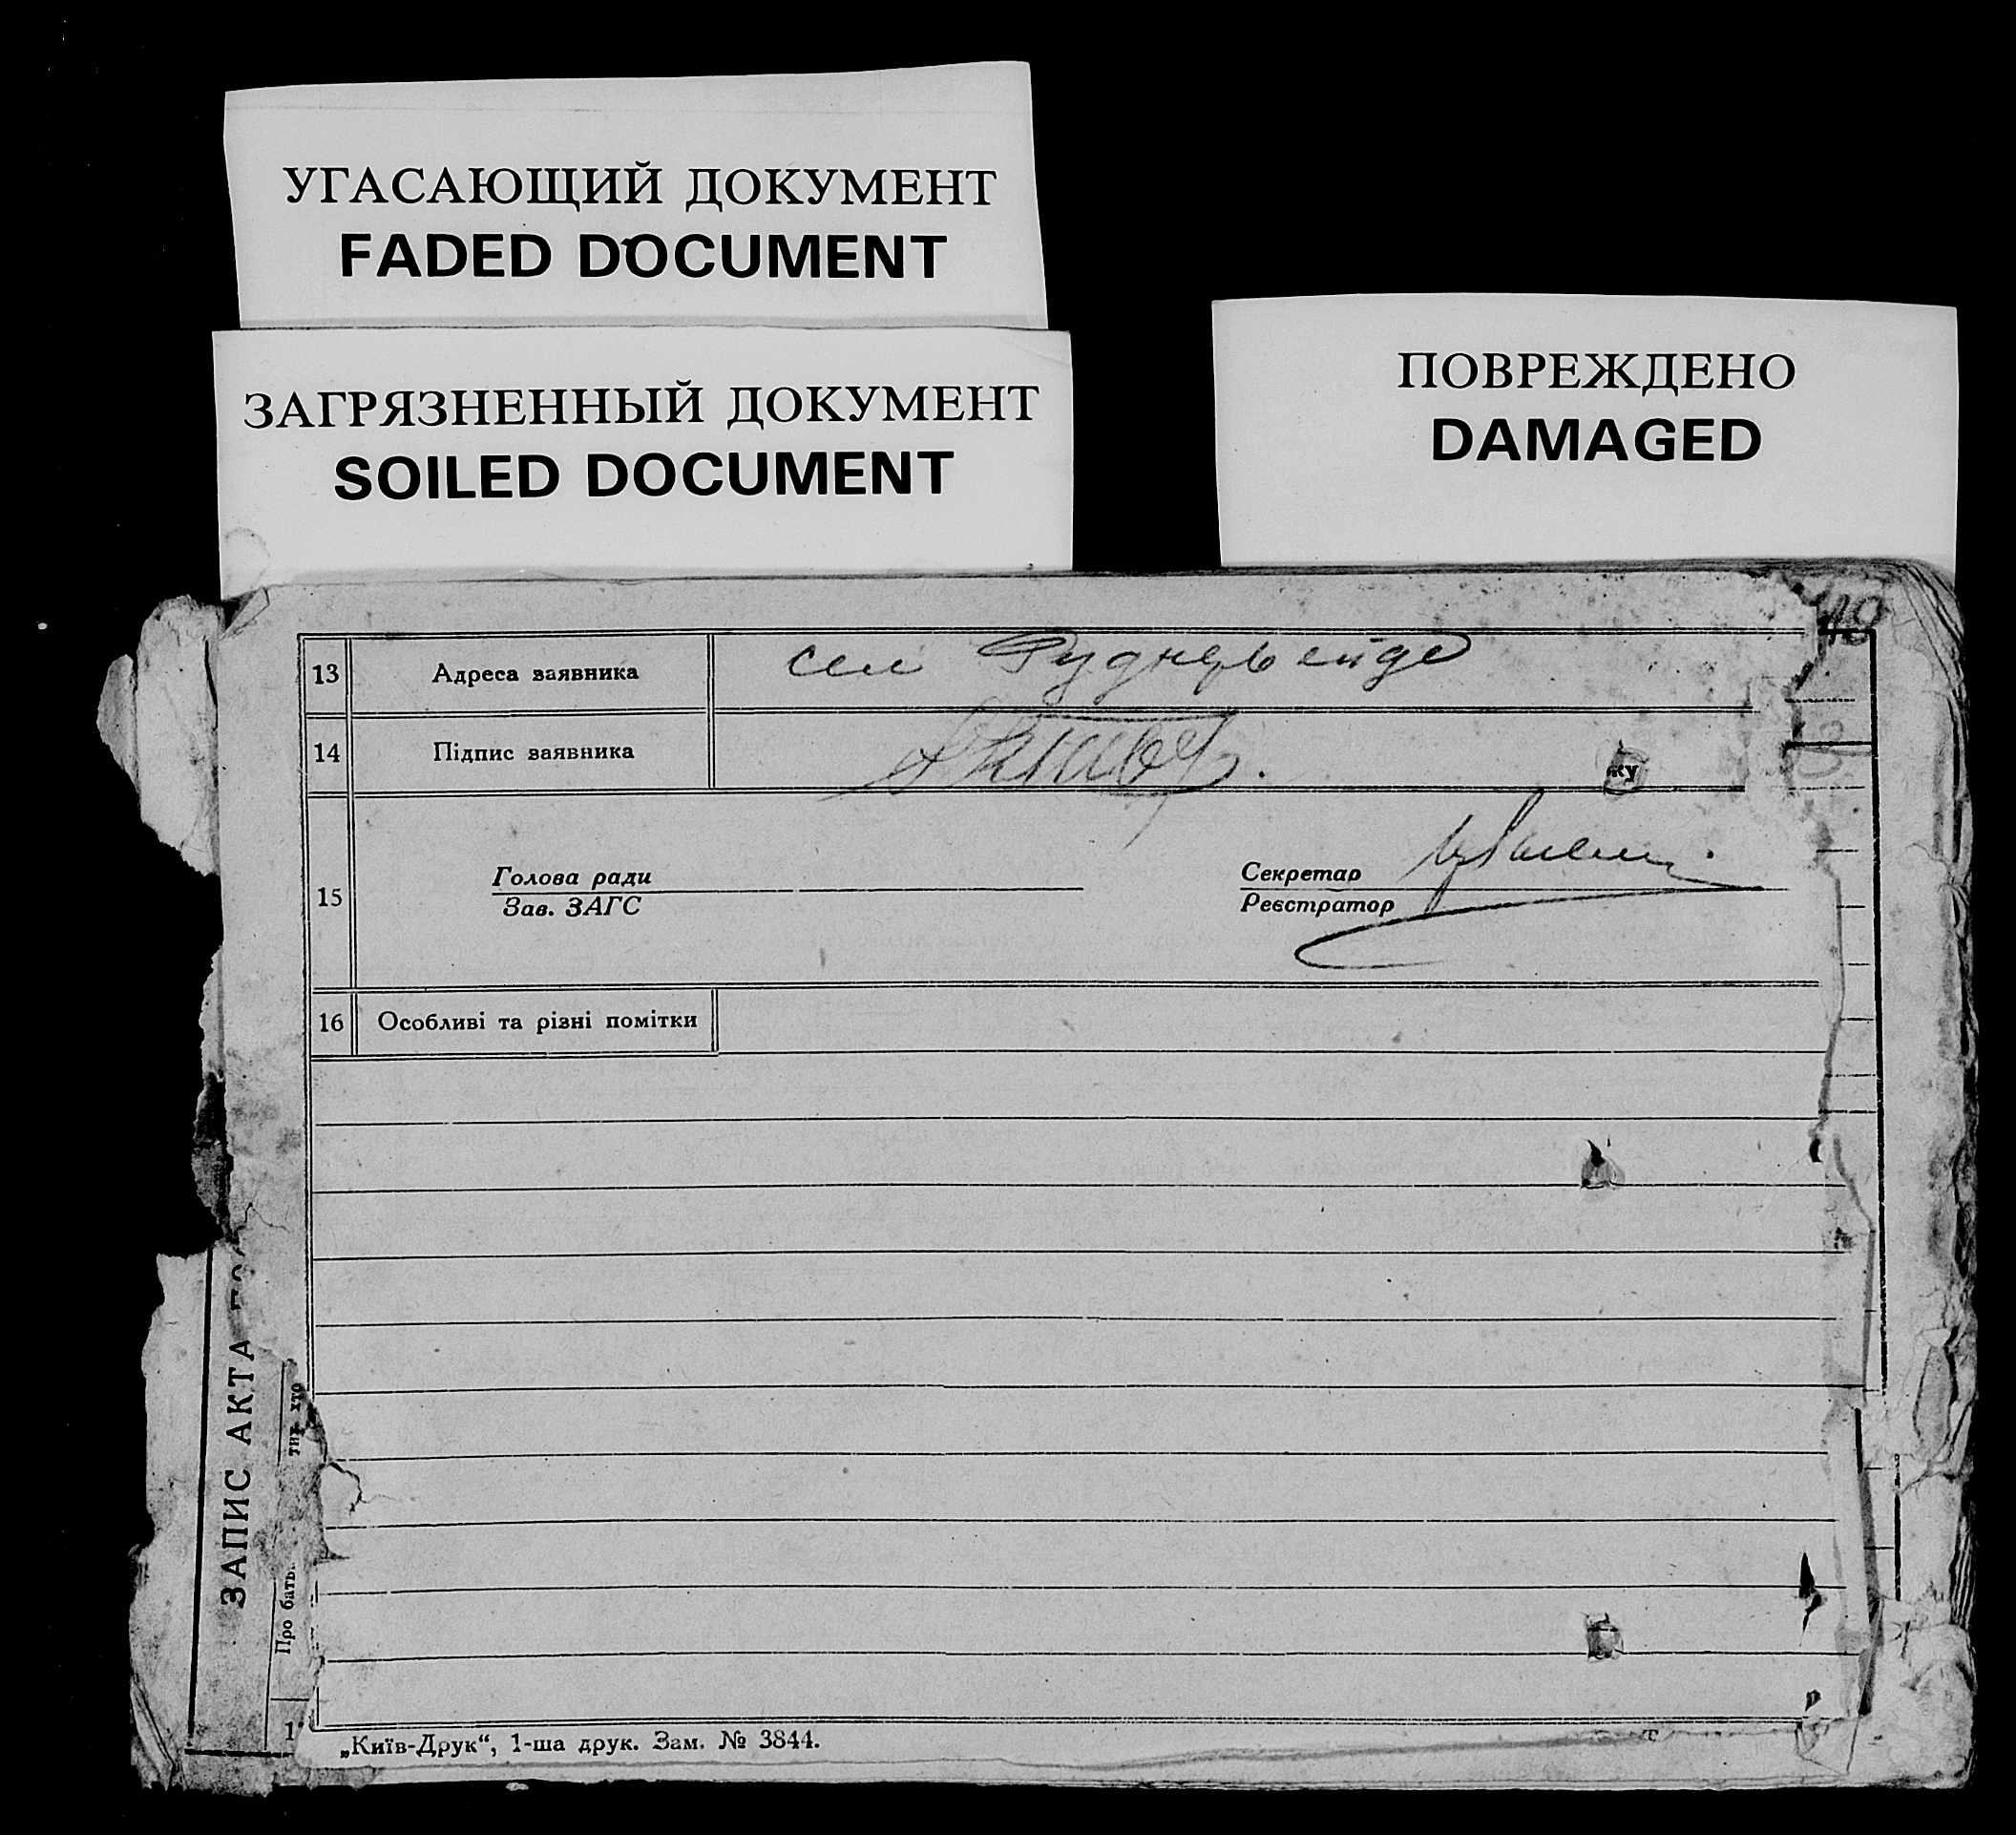 УГАСАЮЩИЙ ДОКУМЕНТ
FADED DOCUMENT
ЗАГРЯЗНЕННЫЙ ДОКУМЕНТ
SOILED DOCUMENT
ПОВРЕЖДЕНО
DAMAGED
13 Адреса заявника сел
14 Підпис заявника
ку
15 Голова ради
Зав. ЗАГС
Секретар
Реєстратор
16 Особливі та різні помітки
ЗАПИС АКТА
Про бать
„Київ-Друк“, 1-ша друк. Зам. № 3844.